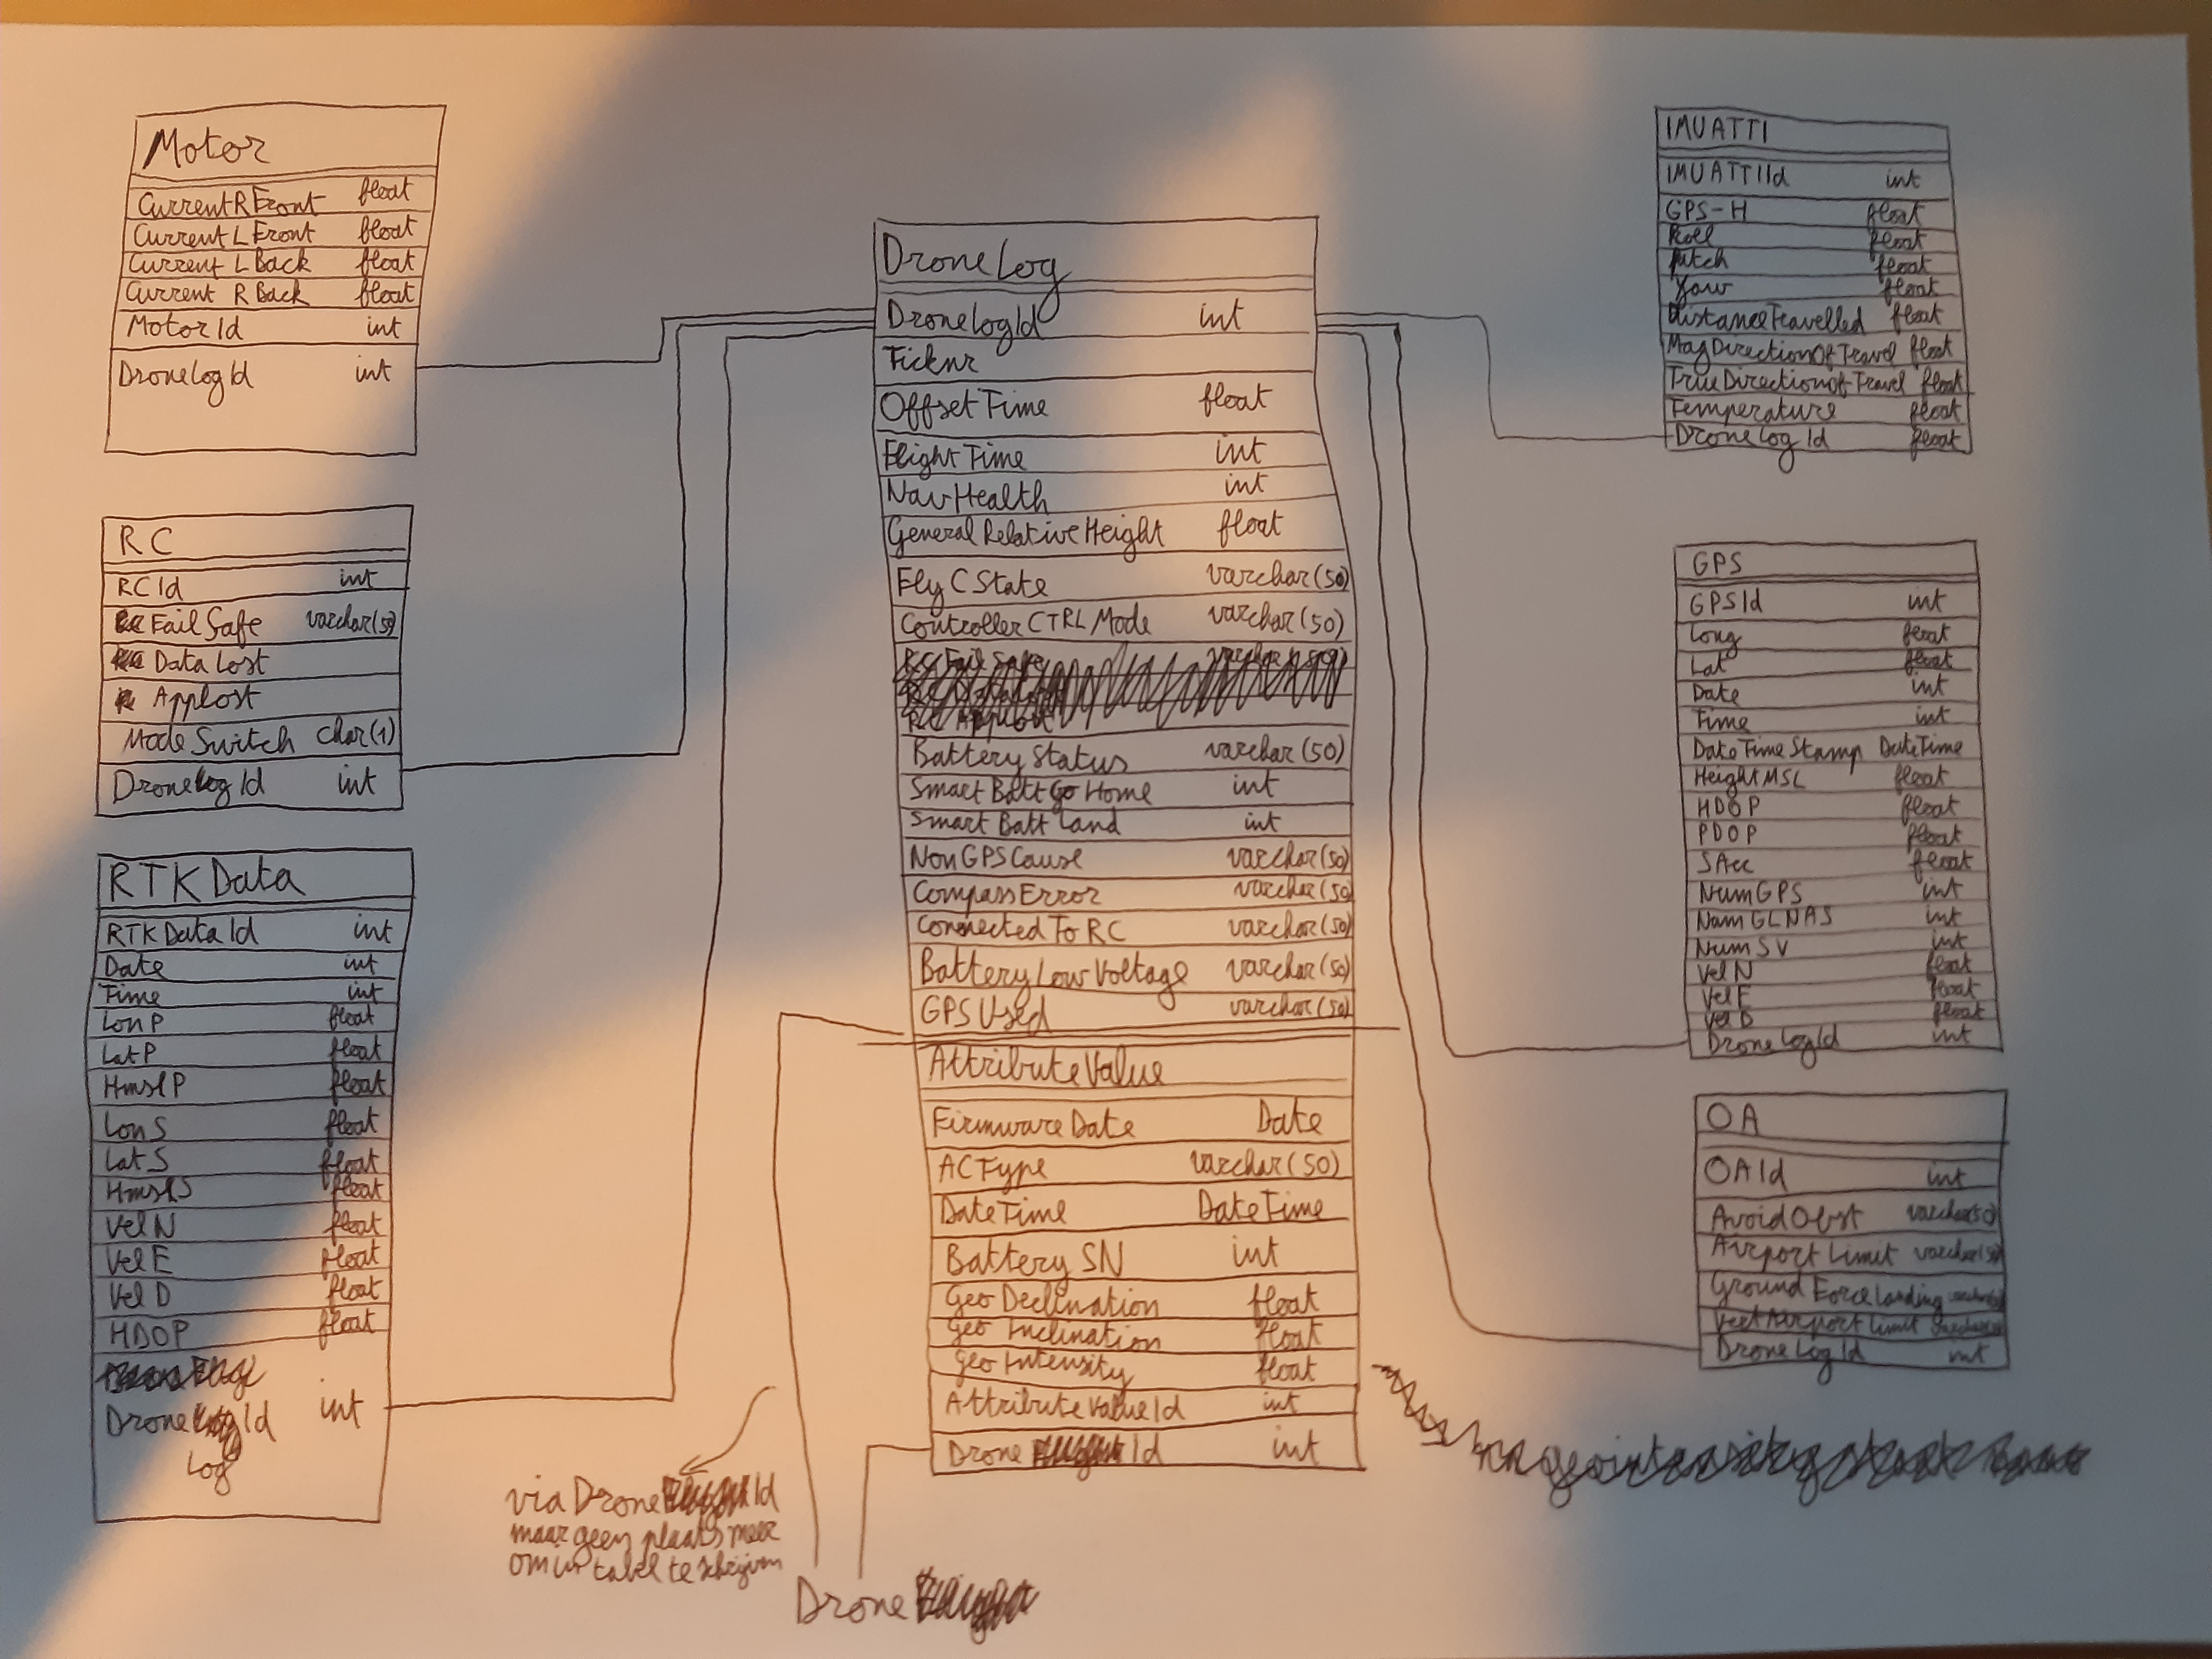 Motor
CurrentRFront float
Current L Front float
Current L Back float
Current R Back float
MotorId int
DroneLogId int
RC
RCId int
FailSafe varchar(50)
DataLost
AppLost
ModeSwitch char(1)
DroneLogId int
RTKData
RTKDataId int
Date int
Time int
LonP float
LatP float
HmslP float
LonS float
LatS float
HmslS float
VelN float
VelE float
VelD float
HDOP float
Drone Id int
Log
DroneLog
DroneLogId int
Ticknr
OffsetTime float
FlightTime int
NavHealth int
GeneralRelativeHeight float
FlyCState varchar(50)
ControllerCTRLMode varchar(50)
BatteryStatus varchar(50)
SmartBattGoHome int
SmartBattLand int
NonGPSCause varchar(50)
CompassError varchar(50)
ConnectedToRC varchar(50)
BatteryLowVoltage varchar(50)
GPSUsed varchar(50)
AttributeValue
FirmwareDate Date
ACType varchar(50)
DateTime DateTime
BatterySN int
GeoDeclination float
Geo Inclination float
GeoIntensity float
AttributeValueId int
Drone Id int
IMUATTI
IMUATTIId int
GPS-H float
Roll float
Pitch float
Yaw float
DistanceTravelled float
MagDirectionOfTravel float
TrueDirectionOfTravel float
Temperature float
DroneLogId float
GPS
GPSId int
Long float
Lat float
Date int
Time int
DateTimeStamp DateTime
HeightMSL float
HDOP float
PDOP float
SAcc float
NumGPS int
NumGLNAS int
NumSV int
VelN float
VelE float
VelD float
DroneLogId int
OA
OAId int
AvoidObst varchar(50)
AirportLimit varchar(50)
GroundForceLanding
VertAirportLimit
DroneLogId int
via Drone Id
maar geen plaats meer
om in tabel te schrijven
Drone